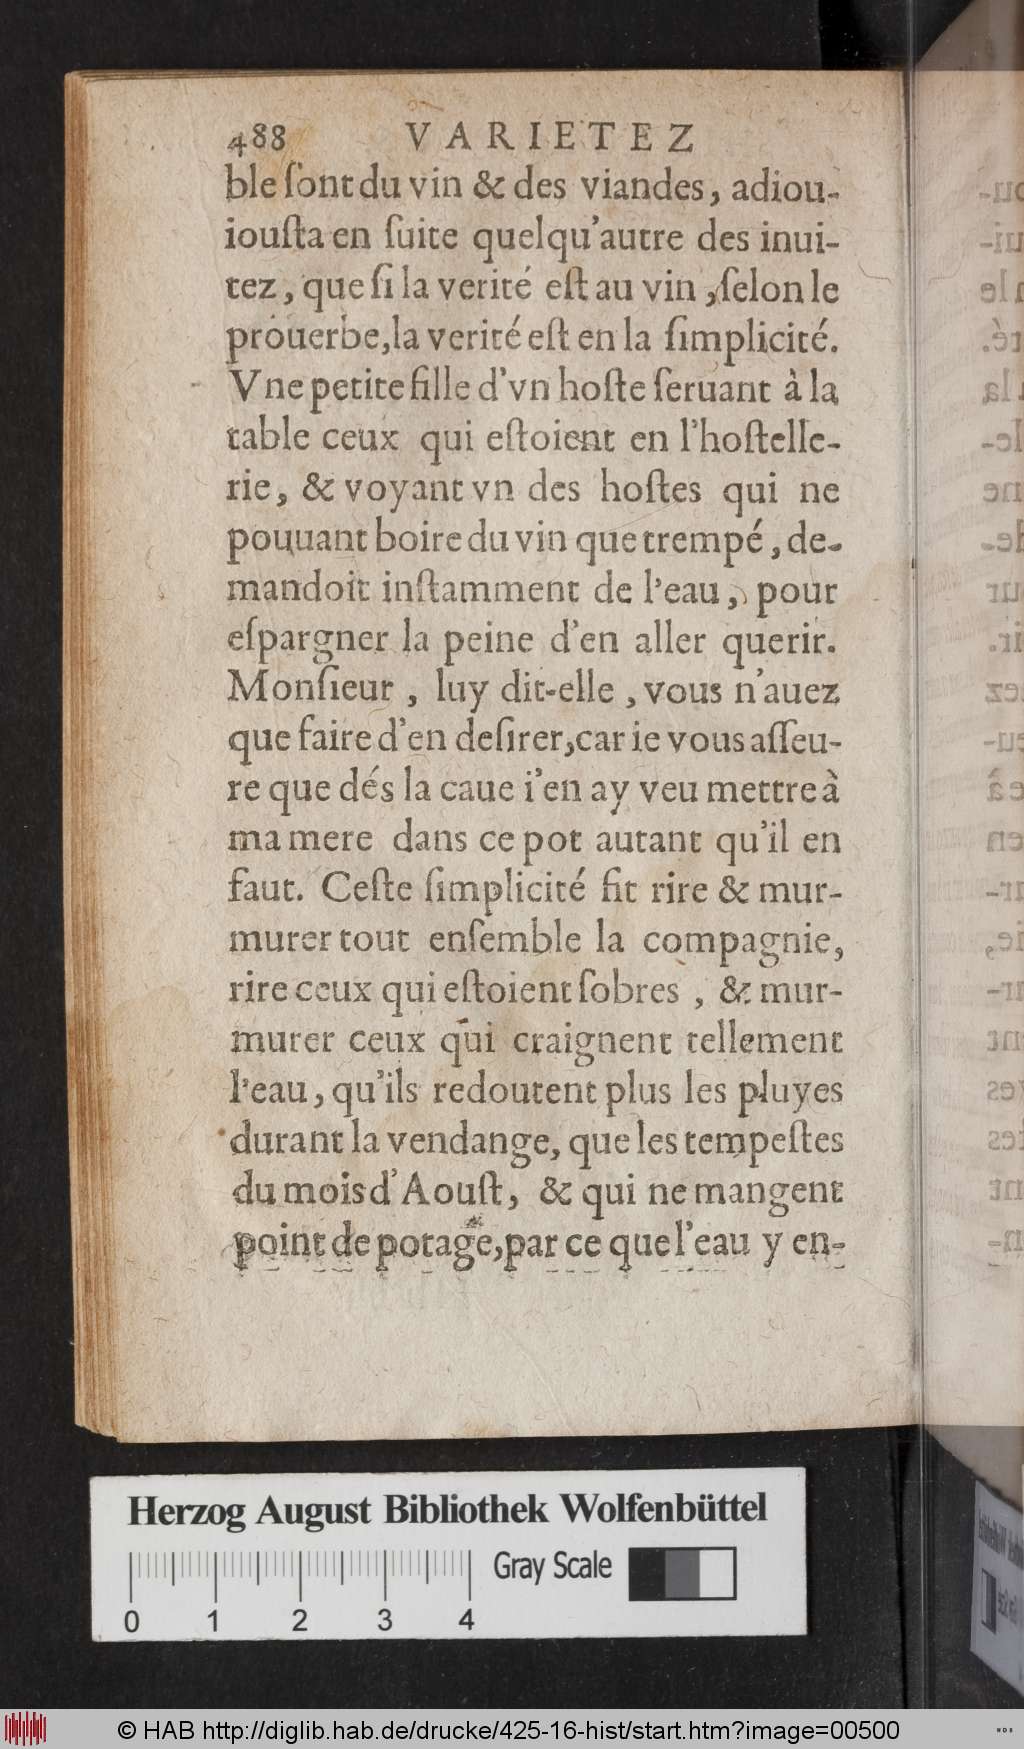 488 VARIETEZ
ble ſont du vin & des viandes, adiou-
iouſta en ſuite quelqu'autre des inui-
tez, que ſi la verité eſt au vin, ſelon le
prouerbe, la verité eſt en la ſimplicité.
Vne petite fille d'vn hoſte ſeruant à la
table ceux qui eſtoient en l'hoſtelle-
rie, & voyant vn des hoſtes qui ne
pouuant boire du vin que trempé, de-
mandoit inſtamment de l'eau, pour
eſpargner la peine d'en aller querir.
Monſieur, luy dit-elle, vous n'auez
que faire d'en deſirer, car ie vous aſſeu-
re que dés la caue i'en ay veu mettre à
ma mere dans ce pot autant qu'il en
faut. Ceſte ſimplicité fit rire & mur-
murer tout enſemble la compagnie,
rire ceux qui eſtoient ſobres, & mur-
murer ceux qui craignent tellement
l'eau, qu'ils redoutent plus les pluyes
durant la vendange, que les tempeſtes
du mois d'Aouſt, & qui ne mangent
point de potage, par ce que l'eau y en-
Herzog August Bibliothek Wolfenbüttel
Gray Scale
0 1 2 3 4
© HAB http://diglib.hab.de/drucke/425-16-hist/start.htm?image=00500